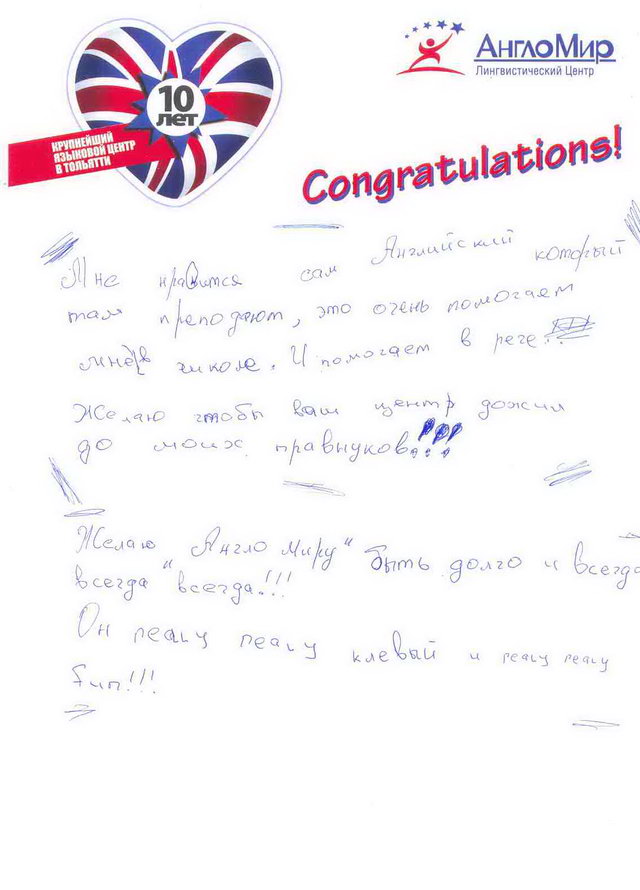 10
ЛЕТ
КРУПНЕЙШИЙ
ЯЗЫКОВОЙ ЦЕНТР
В ТОЛЬЯТТИ
АнглоМир
Лингвистический Центр
Congratulations!
Мне нравится сам Английский который
там преподают, это очень помогает
мне в школе. И помогает в рече.
Желаю чтобы ваш центр дожил
до моих правнуков!!!
Желаю "Англо миру" быть долго и всегда
всегда всегда!!!
Он realy realy клевый и realy realy
fun!!!